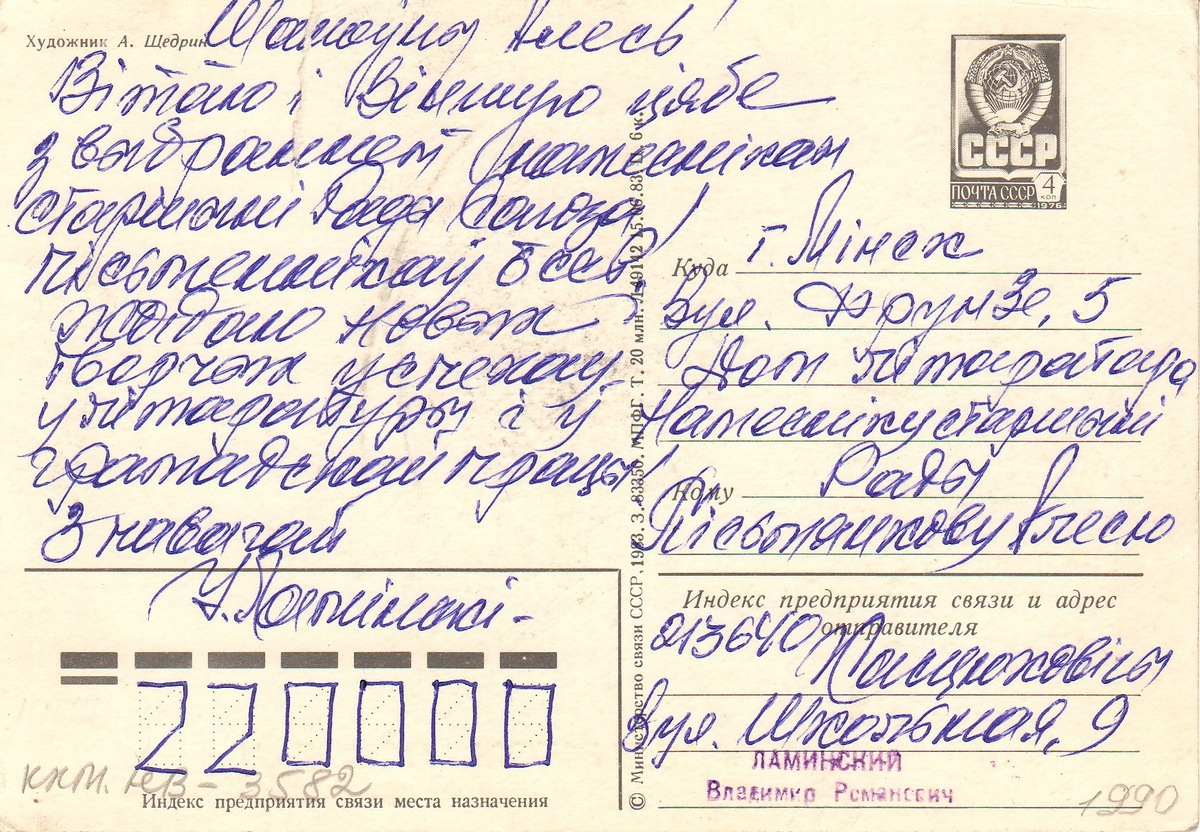 Художник А. Щедрин
Шаноўны Алесь!
Вітаю і віншую цябе
з выбраннем намеснікам
старшыні Рады Саюза
пісьменнікаў БССР!
Жадаю новых
творчых успехаў
у літаратуры і у
грамадскай працы!
З павагай
У. Ламінскі-
СССР
ПОЧТА СССР 4 коп
1976
Куда г. Мінск
Вул. Фрунзе, 5
Дом літаратара
Намесніку старшыні
Кому Рады
Письмянкову Алесю
Индекс предприятия связи и адрес
отправителя
213640
вул. Школьная, 9
ЛАМИНСКИЙ
Владимир Романович
1990
220000
ККМ. НВ-3582
Индекс предприятия связи места назначения
© Министерство связи СССР, 1983. З. 83350. МПФГ. Т. 20 млн. 15.06.83. Ц. 6 к.